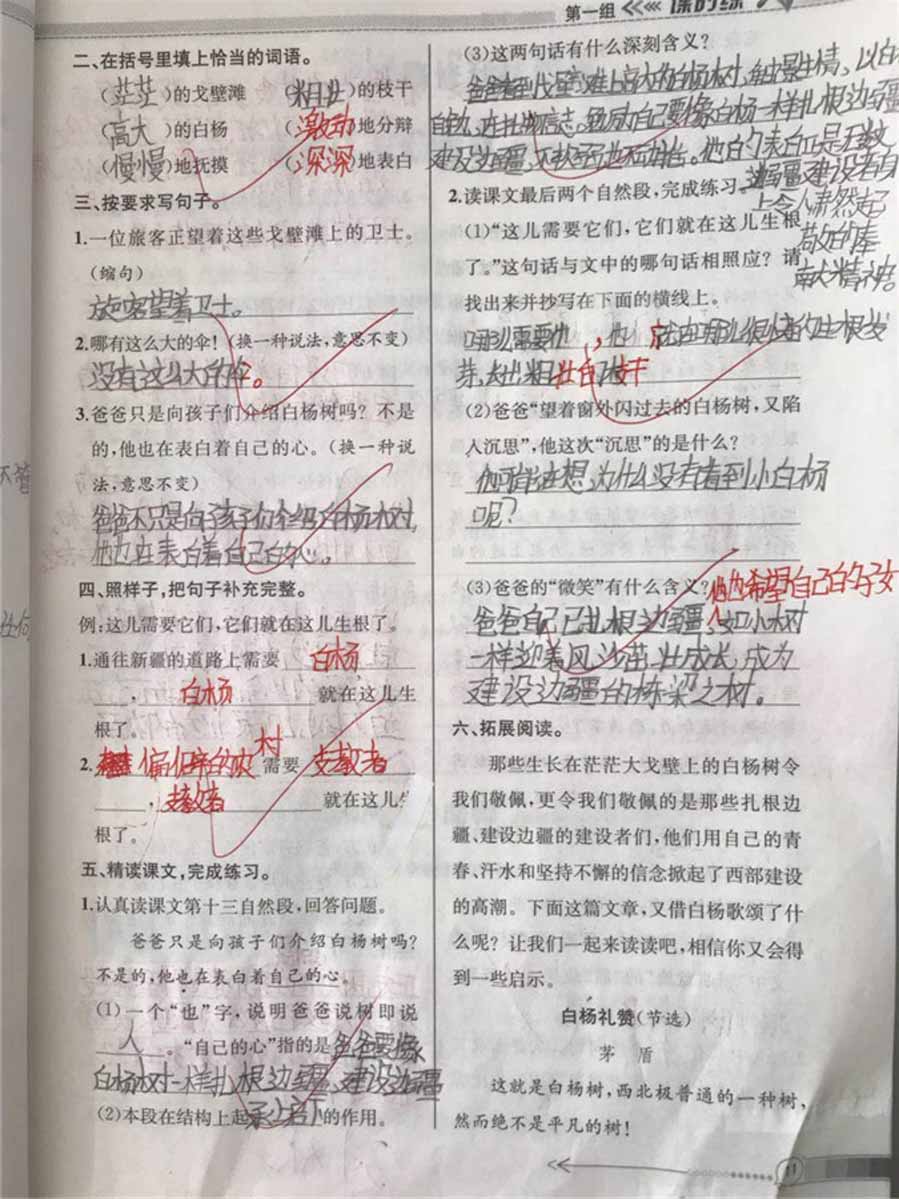 第一组 课时练
二、在括号里填上恰当的词语。
（茫茫）的戈壁滩 （粗壮）的枝干
（高大）的白杨 （激动）地分辩
（慢慢）地抚摸 （深深）地表白
三、按要求写句子。
1.一位旅客正望着这些戈壁滩上的卫士。
（缩句）
旅客望着卫士。
2.哪有这么大的伞！（换一种说法，意思不变）
没有这么大的伞。
3.爸爸只是向孩子们介绍白杨树吗？不是
的，他也在表白着自己的心。（换一种说
法，意思不变）
爸爸不只是向孩子们介绍白杨树，
他也在表白着自己的心。
四、照样子，把句子补充完整。
例：这儿需要它们，它们就在这儿生根了。
1.通往新疆的道路上需要 白杨
， 白杨 就在这儿生
根了。
2. 偏僻的农村 需要 支教者
， 支教者 就在这儿生
根了。
五、精读课文，完成练习。
1.认真读课文第十三自然段，回答问题。
爸爸只是向孩子们介绍白杨树吗？
不是的，他也在表白着自己的心。
（1）一个“也”字，说明爸爸说树即说
人 。“自己的心”指的是爸爸要像
白杨树一样扎根边疆、建设边疆
（2）本段在结构上起 承上启下 的作用。
（3）这两句话有什么深刻含义？
爸爸看到戈壁滩上高大的白杨树，触景生情，以白
自勉，在托物言志。勉励自己要像白杨一样扎根边疆
建设边疆，他的表白正是无数
边疆建设者身
上令人肃然起
敬的奉
献精神
2.读课文最后两个自然段，完成练习。
（1）“这儿需要它们，它们就在这儿生根
了。”这句话与文中的哪句话相照应？请
找出来并抄写在下面的横线上。
哪儿需要它，它 就在哪儿很快的生根发
芽，长出粗壮的枝干
（2）爸爸“望着窗外闪过去的白杨树，又陷
入沉思”，他这次“沉思”的是什么？
他可能在想，为什么没有看到小白杨
呢？
（3）爸爸的“微笑”有什么含义？他也希望自己的子女
爸爸自己已扎根边疆，如小树
一样迎着风沙茁壮成长，成为
建设边疆的栋梁之材。
六、拓展阅读。
那些生长在茫茫大戈壁上的白杨树令
我们敬佩，更令我们敬佩的是那些扎根边
疆、建设边疆的建设者们，他们用自己的青
春、汗水和坚持不懈的信念掀起了西部建设
的高潮。下面这篇文章，又借白杨歌颂了什
么呢？让我们一起来读读吧，相信你又会得
到一些启示。
白杨礼赞（节选）
茅 盾
这就是白杨树，西北极普通的一种树，
然而绝不是平凡的树！
11